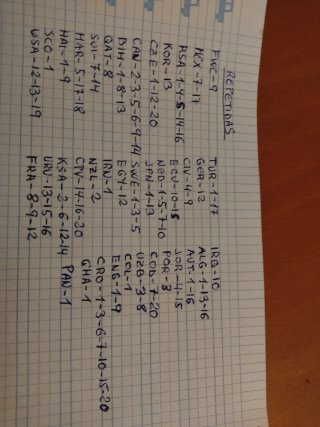 REPETIDAS
FWC-9
MEX-7-17
RSA-1-4-5-14-16
KOR-13
CZE-1-12-20
CAN-2-3-5-6-9-14
BIH-1-8-13
QAT-8
SUI-7-14
MAR-5-17-18
HAI-1-9
SCO-1
USA-12-13-19
TUR-1-17
GER-12
CIV-4-9
ECU-10-15
NED-1-5-7-10
JPN-1-13
SWE-1-3-5
EGY-12
IRN-1
NZL-2
CPV-14-16-20
KSA-2-6-12-14
URU-13-15-16
FRA-8-9-12
IRQ-10
ALG-1-13-16
AUT-1-16
JOR-4-15
POR-3
COD-7-20
UZB-3-8
COL-1
ENG-1-9
CRO-1-3-6-7-10-15-20
GHA-1
PAN-1